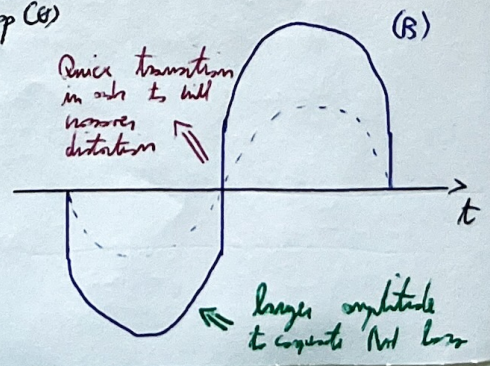 (B)
Quick transition
in order to kill
crossover
distortion
t
larger amplitude
to compensate loss